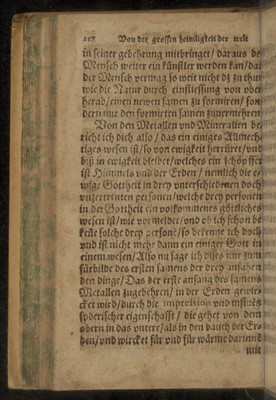 217 Von der grossen heimligkeit der welt
in seiner gebehrung mitbringet/ daraus der
Mensch weiter ein künstler werden kan/ dan
der Mensch vermag so weit nicht dz zu thun
wie die Natur durch einfliessung von oben
herab/ einen newen samen zu formiren/ son-
dern nur den formirten samen zuvermehren.
Von den Metallen und Mineralien be-
richt ich dich also/ das ein einiges Allmech-
tiges wesen ist/ so von ewigkeit herrüret/ und
biß in ewigkeit bleibet/ welches ein schöpffer
ist Himmels und der Erden/ nemlich die e-
wige Gottheit in drey unterschiedenen doch
unzertrenten personen/ welche drey personen
in der Gottheit ein volkommenes göttliches
wesen ist/ wie vormeldet/ und ob ich schon be-
kenne solche drey person/ so bekenne ich doch
und ist nicht mehr dann ein einiger Gott in
einem wesen/ Also nu sage ich dises nur zum
fürbilde des ersten samens der drey anfahen
den dinge/ Das der erste anfang des samens
Metallen zugebehren/ in der Erden gewir-
cket wird/ durch die impression und influens
syderischer eigenschafft/ die gehet von dem
obern in das untere/ als in den bauch der Er-
den/ und wircket für und für wärme darinnē
mit